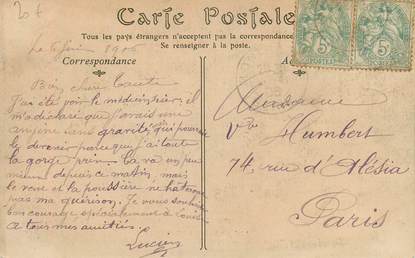 20 f
Carte Postale
Tous les pays étrangers n'acceptent pas la correspondance
Se renseigner à la poste.
Correspondance
Le 6 Juin 1906
Bien chère Tante
J'ai été voir le médecin hier, il
m'a déclaré que j'avais une
angine sans gravité qui pourrait
le devenir parce que j'ai toute
la gorge prise. Ça va un peu
mieux depuis ce matin, mais
le vent et la poussière ne hâteront
pas ma guérison. Je vous souhaite
bon courage spécialement à Louise
à tous mes amitiés.
Lucien
5c
POSTES
5c
POSTES
Madame
Vve Humbert
74 rue d'Alésia
Paris